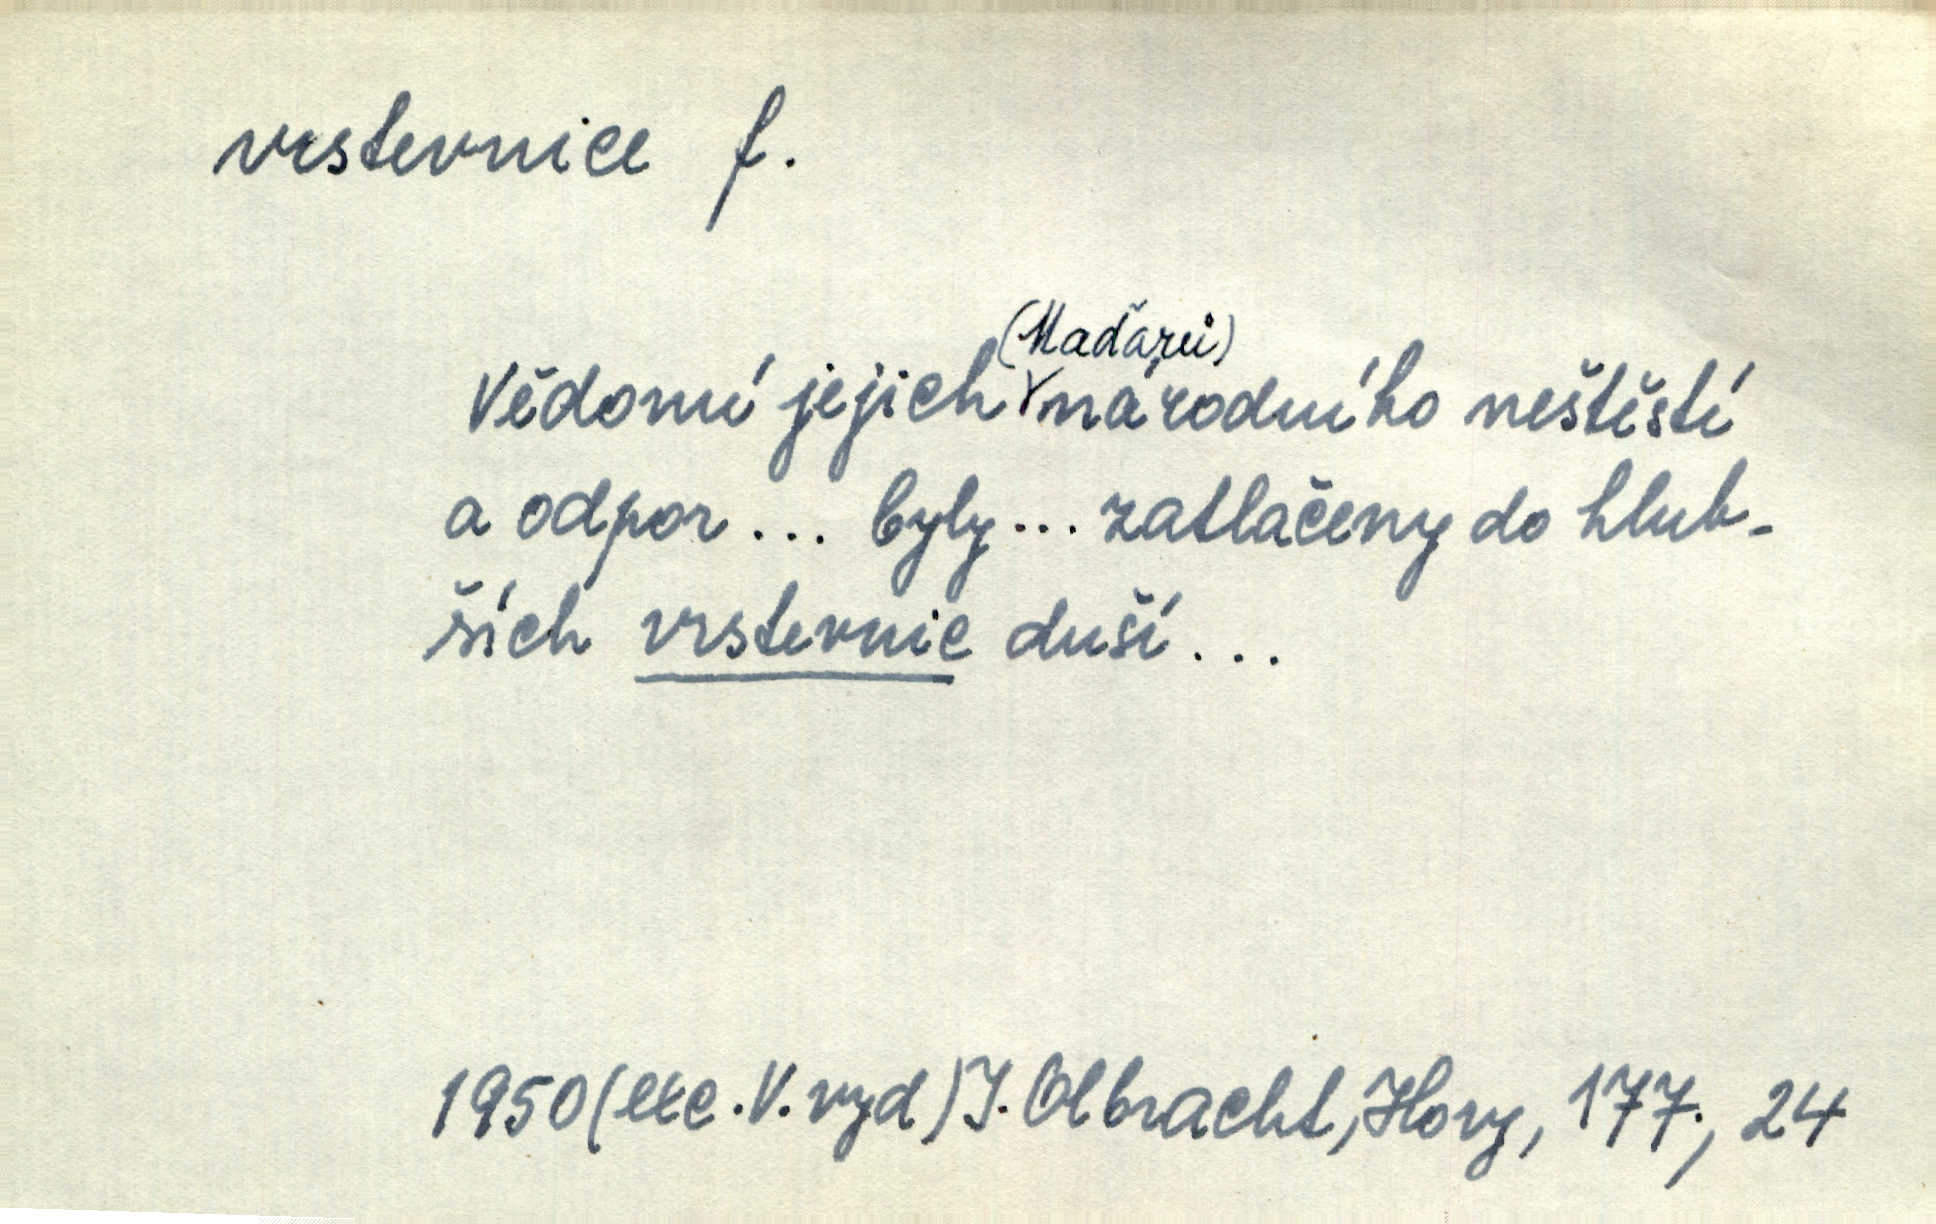 vrstevnice f.
(Maďarů)
Vědomí jejich národního neštěstí
a odpor... byly... zatlačeny do hlub-
ších vrstevnic duší...
1950 (exc. V. vyd) I. Olbracht, Hory, 177., 24